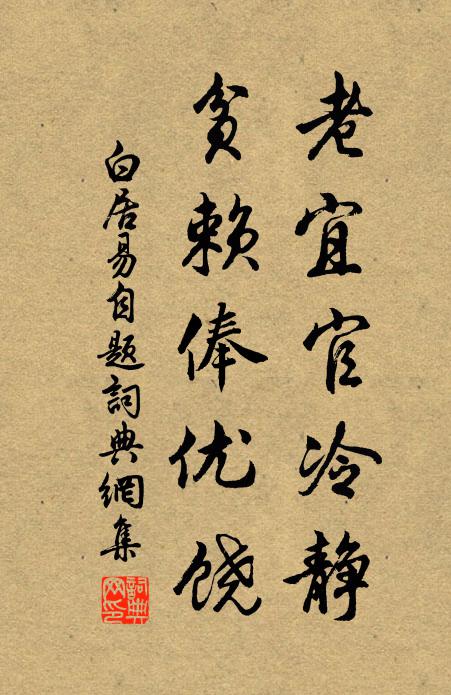 老宜官冷静
贫赖俸优饶
白居易自题詞典網集
詞典网印